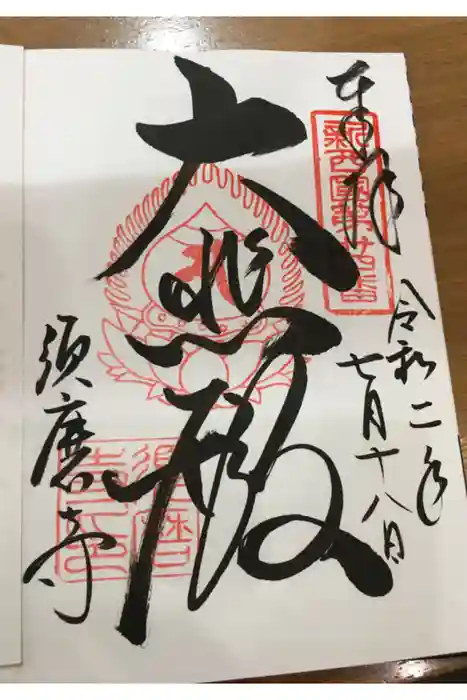 奉拝
令和二年
七月十八日
大悲殿
須磨寺